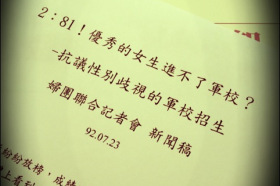 2：81！優秀的女生進不了軍校？
-抗議性別歧視的軍校招生
婦團聯合記者會 新聞稿
92.07.23
紛紛放榜，成績